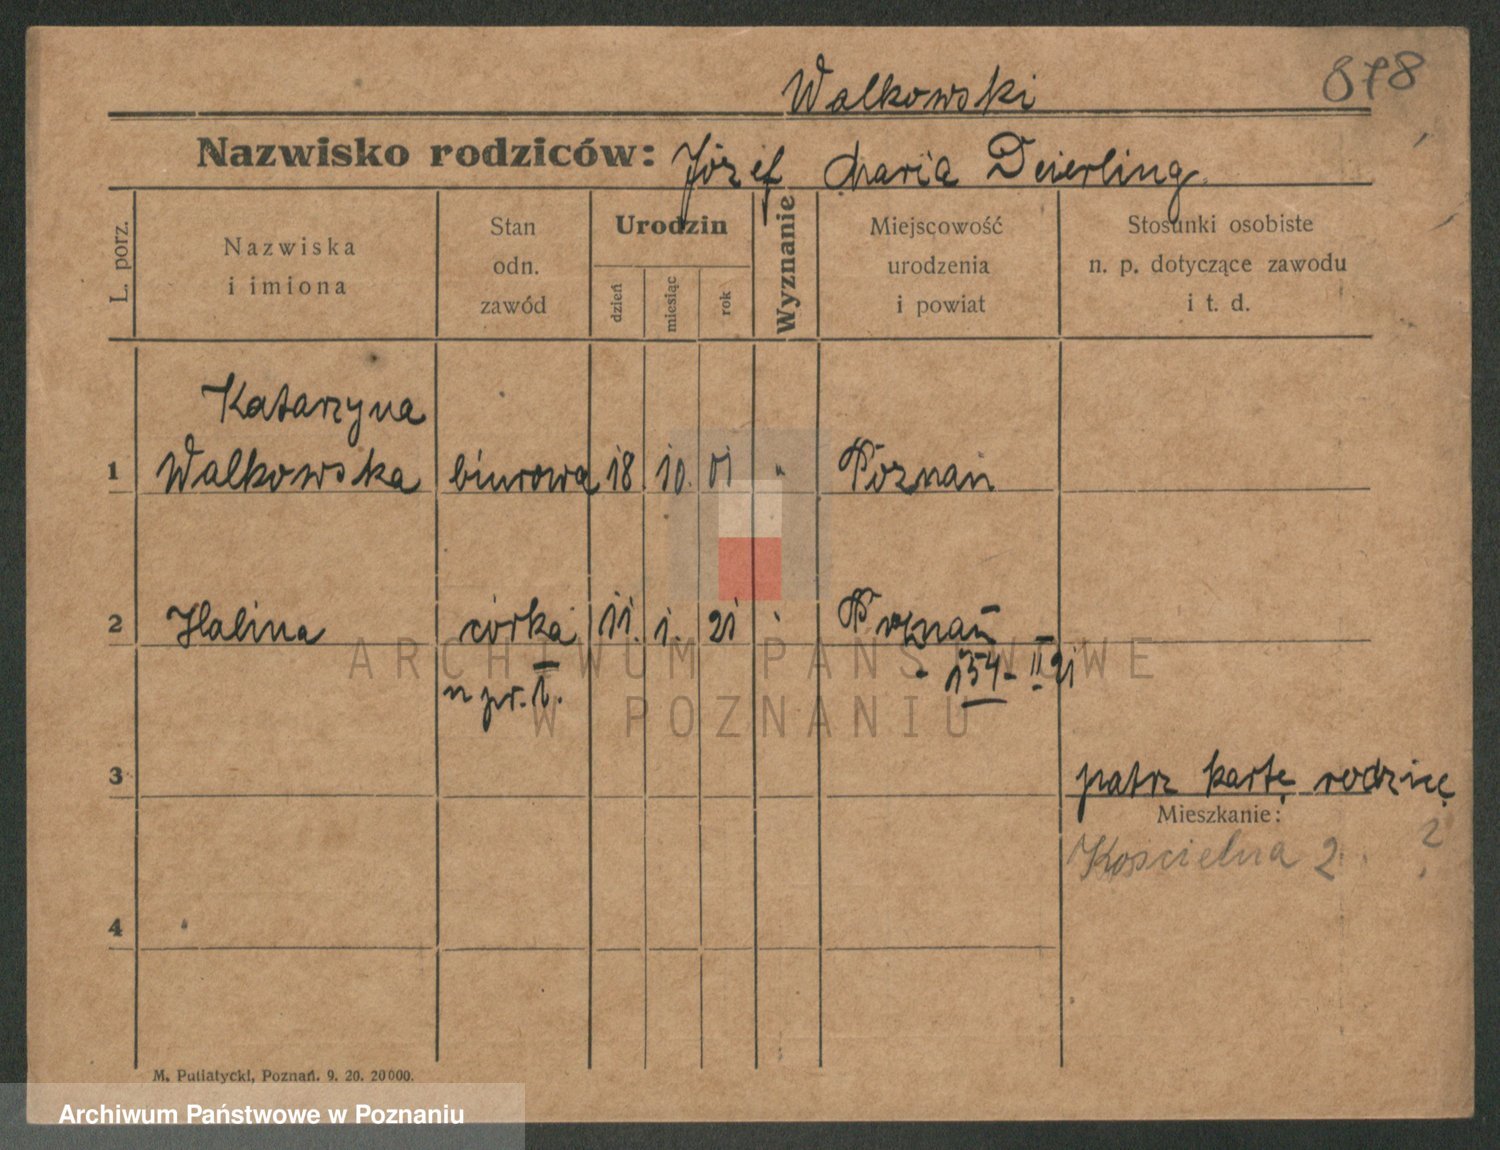 Walkowski
878
Nazwisko rodziców: Józef Maria Deierling
L. porz.
Nazwiska i imiona
Stan odn. zawód
Urodzin
dzień
miesiąc
rok
Wyznanie
Miejscowość urodzenia i powiat
Stosunki osobiste n. p. dotyczące zawodu i t. d.
Katarzyna
1 Walkowska biurowa 18 10. 01 " Poznań
2 Halina córka 11. 1. 21 Poznań
n pr. 1. - 154 - II 21
3 patrz kartę rodzicę
Mieszkanie:
Kościelna 2. ?
4
M. Putiatycki, Poznań. 9. 20. 20000.
ARCHIWUM PAŃSTWOWE
W POZNANIU
Archiwum Państwowe w Poznaniu